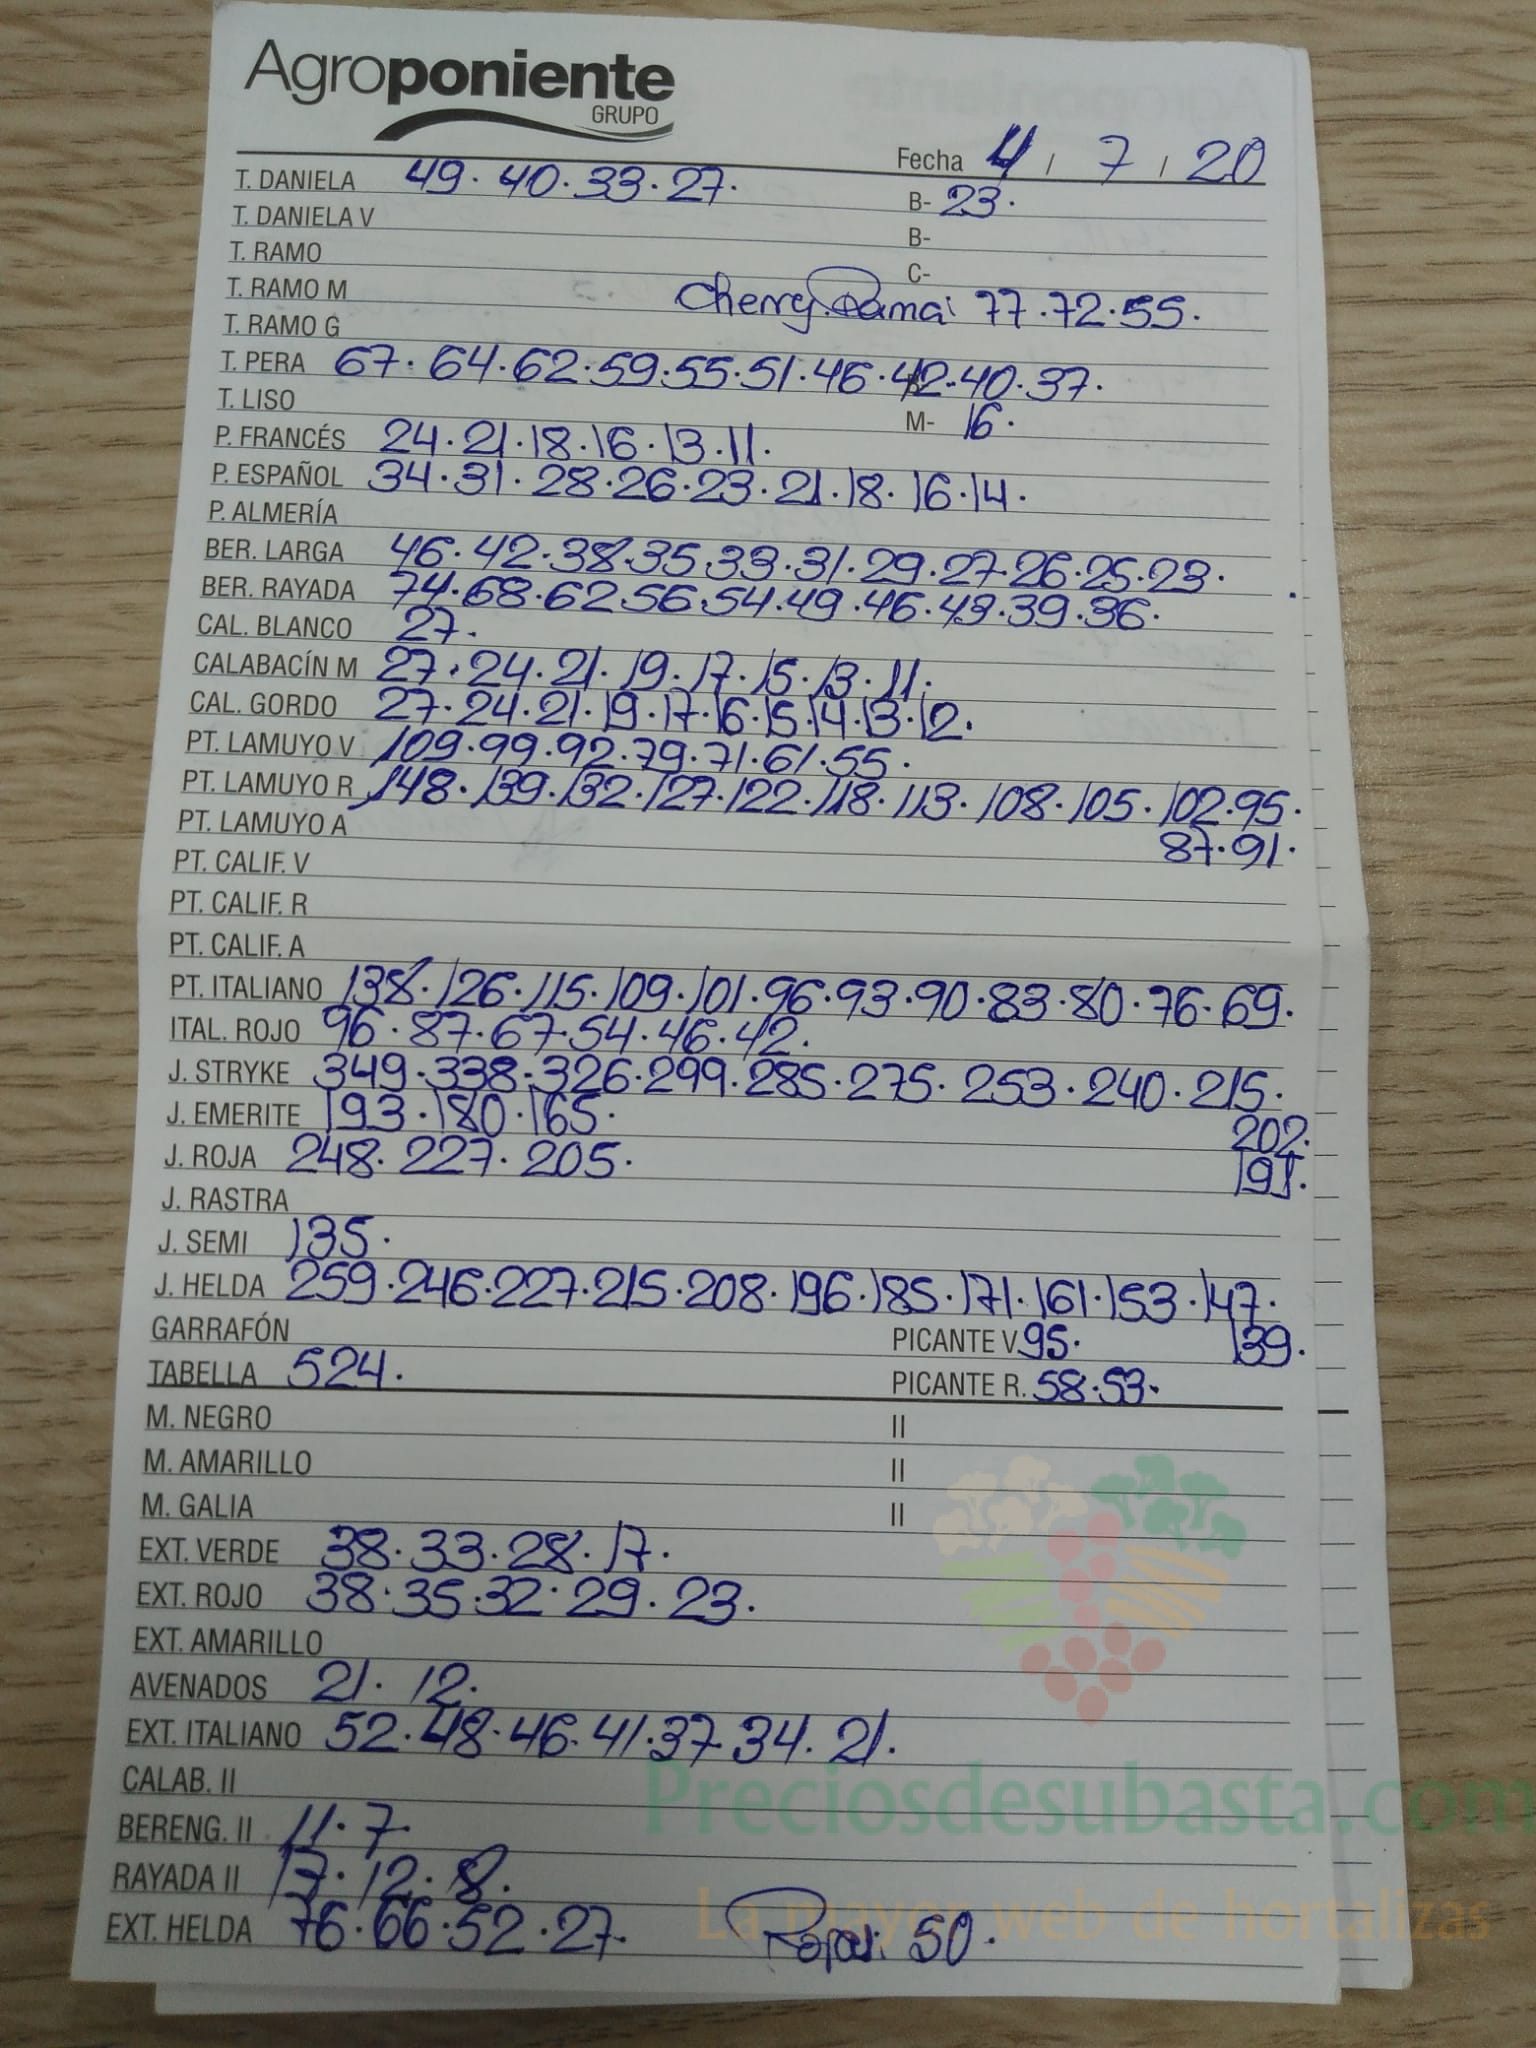 Agroponiente
GRUPO
Fecha 4 / 7 / 20
T. DANIELA 49. 40. 33. 27. B- 23.
T. DANIELA V B-
T. RAMO C-
T. RAMO M Cherry Rama: 77. 72. 55.
T. RAMO G
T. PERA 67. 64. 62. 59. 55. 51. 46. 42. 40. 37.
T. LISO M- 16.
P. FRANCÉS 24. 21. 18. 16. 13. 11.
P. ESPAÑOL 34. 31. 28. 26. 23. 21. 18. 16. 14.
P. ALMERÍA
BER. LARGA 46. 42. 38. 35. 33. 31. 29. 27. 26. 25. 23.
BER. RAYADA 74. 68. 62. 56. 54. 49. 46. 43. 39. 36.
CAL. BLANCO 27.
CALABACÍN M 27. 24. 21. 19. 17. 15. 13. 11.
CAL. GORDO 27. 24. 21. 19. 17. 16. 15. 14. 13. 12.
PT. LAMUYO V 109. 99. 92. 79. 71. 61. 55.
PT. LAMUYO R 148. 139. 132. 127. 122. 118. 113. 108. 105. 102. 95.
PT. LAMUYO A 87. 91.
PT. CALIF. V
PT. CALIF. R
PT. CALIF. A
PT. ITALIANO 138. 126. 115. 109. 101. 96. 93. 90. 83. 80. 76. 69.
ITAL. ROJO 96. 87. 67. 54. 46. 42.
J. STRYKE 349. 338. 326. 299. 285. 275. 253. 240. 215.
J. EMERITE 193. 180. 165. 202.
J. ROJA 248. 227. 205. 191.
J. RASTRA
J. SEMI 135.
J. HELDA 259. 246. 227. 215. 208. 196. 185. 171. 161. 153. 147.
GARRAFÓN PICANTE V. 95. 139.
TABELLA 524. PICANTE R. 58. 53.
M. NEGRO II
M. AMARILLO II
M. GALIA II
EXT. VERDE 38. 33. 28. 17.
EXT. ROJO 38. 35. 32. 29. 23.
EXT. AMARILLO
AVENADOS 21. 12.
EXT. ITALIANO 52. 48. 46. 41. 37. 34. 21.
CALAB. II
Preciosdesubasta.com
BERENG. II 11. 7.
RAYADA II 17. 12. 8.
La mayor web de hortalizas
EXT. HELDA 76. 66. 52. 27. 50.